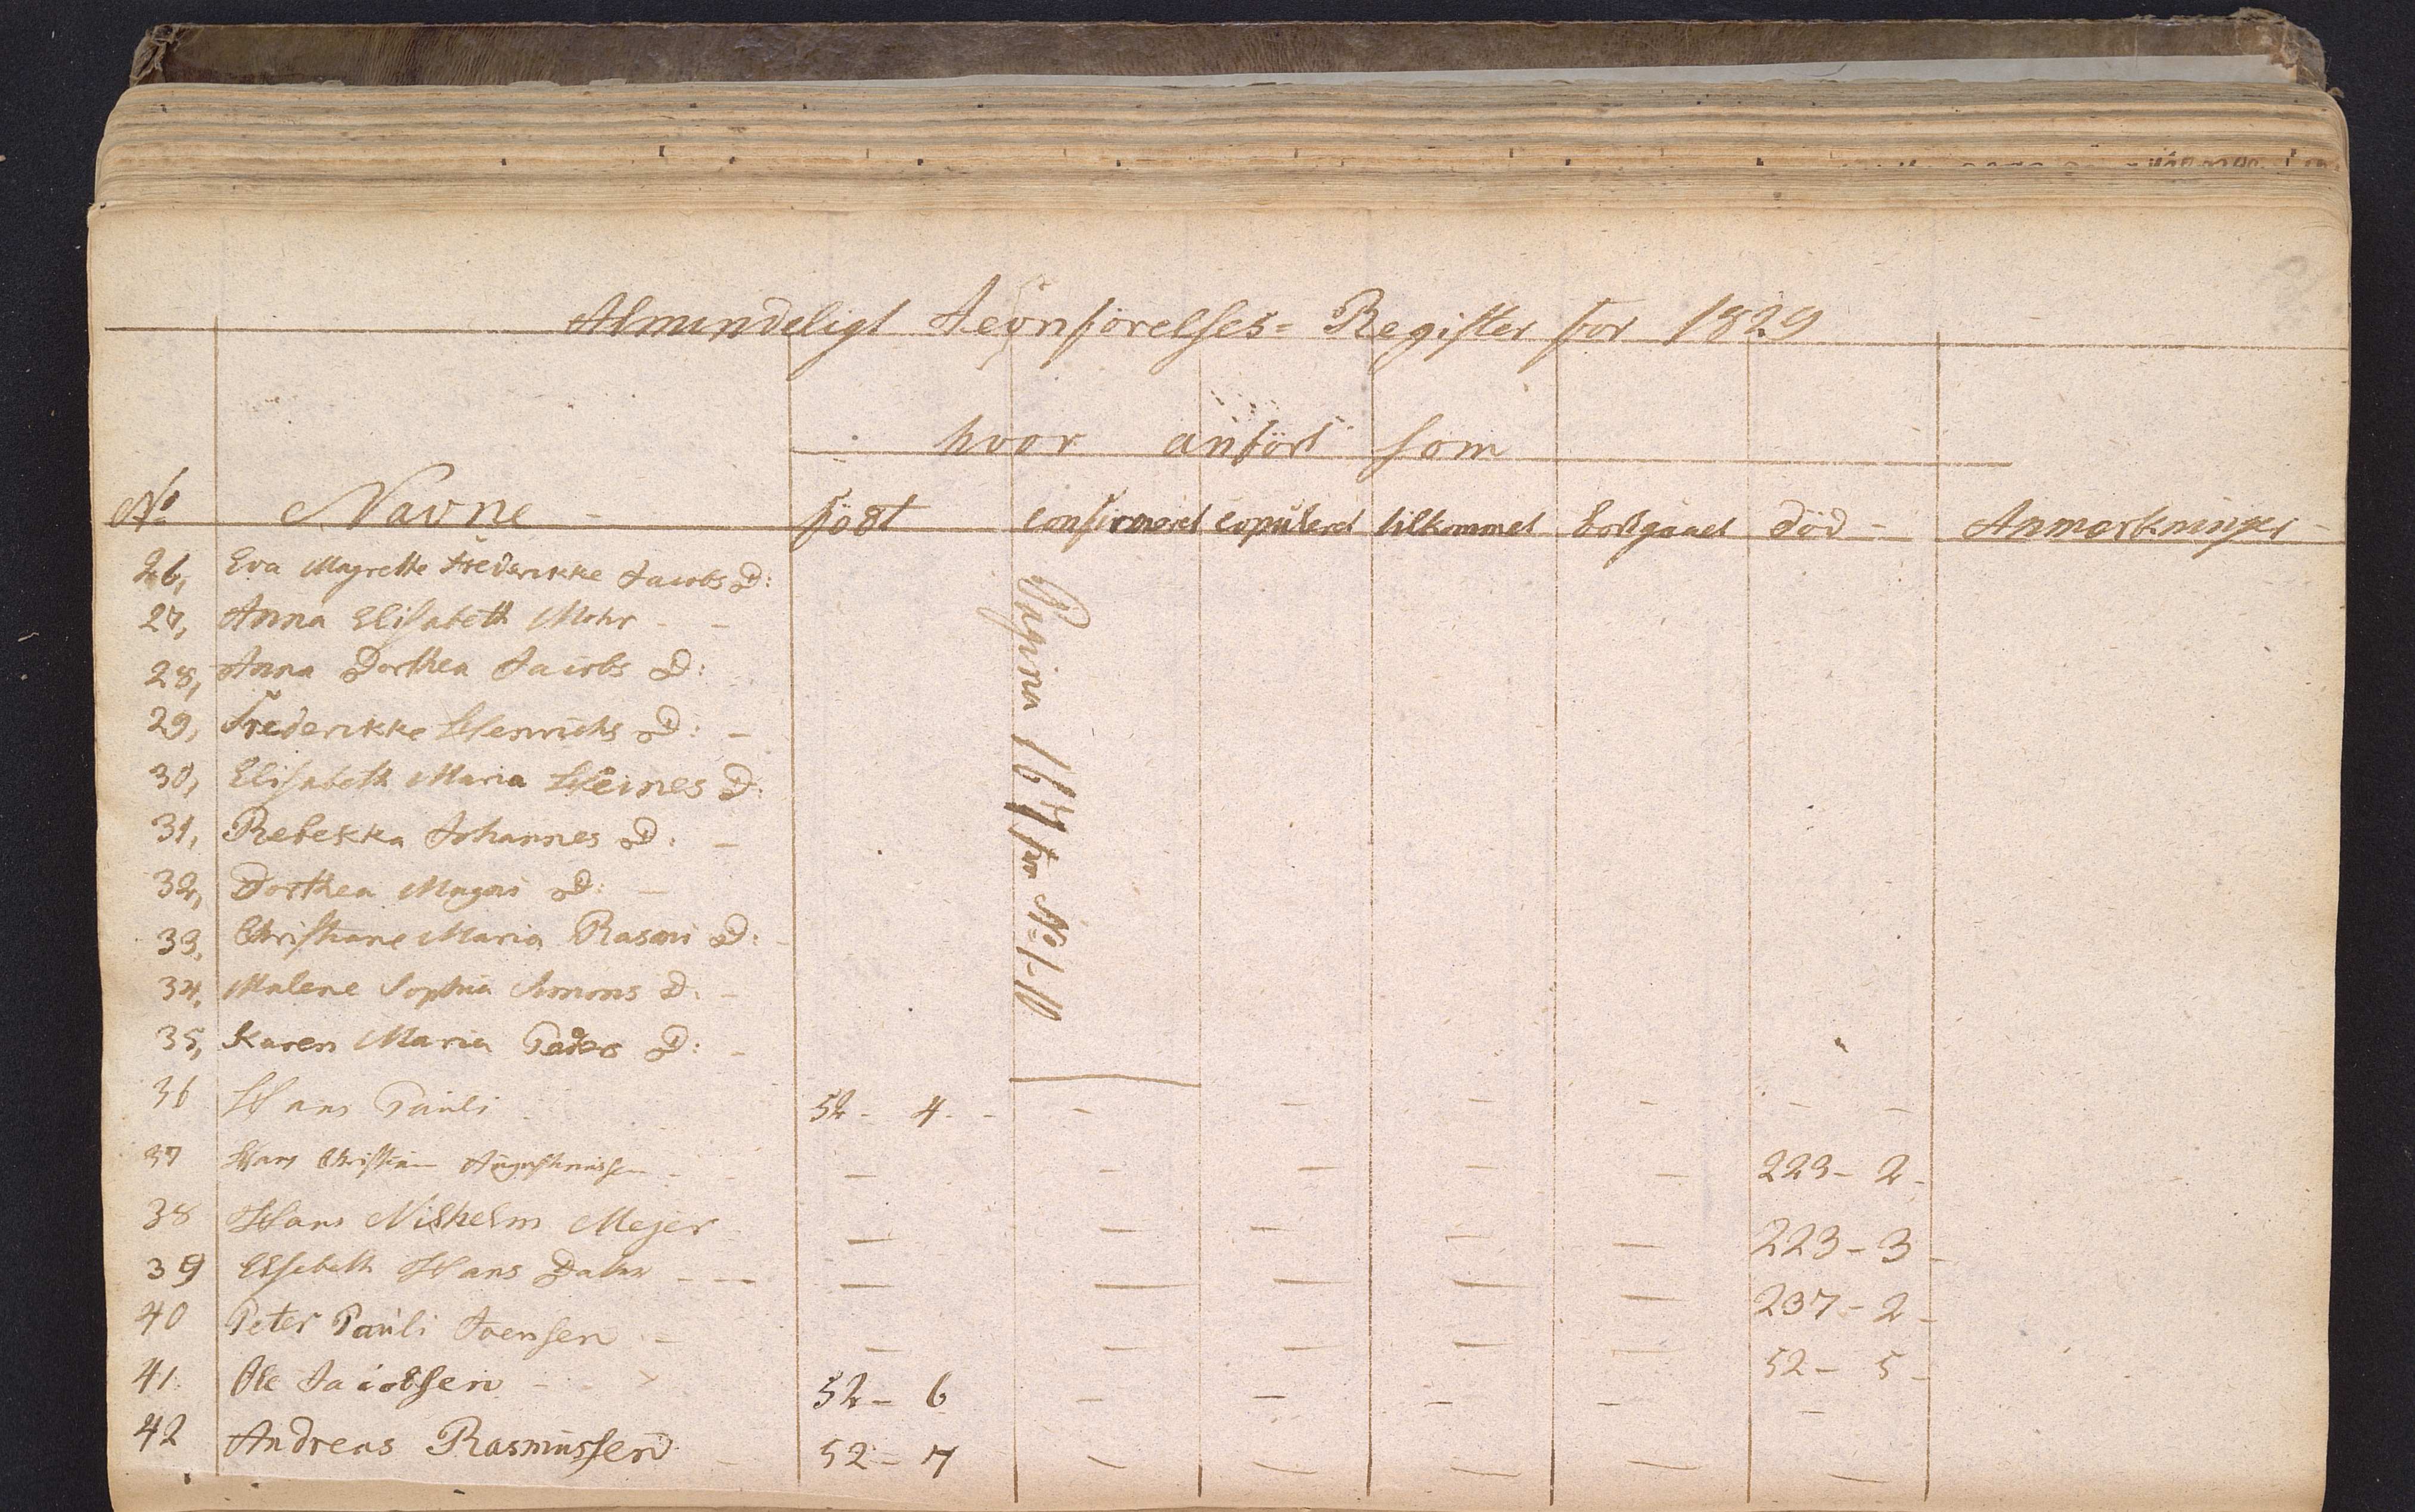 Almindeligt Jevnförelses=Register for 1829
hvor anfört som
No Navne - födt confirmeret copuleret tilkommet bortgaaet död - Anmærkninger -
26, Eva Magrethe Frederikke Jacobs D:
27, Anna Elisabeth Mohr - -
28, Anna Dorthea Jacobs D:
29, Frederikke Henrichs D: -
30, Elisabeth Maria Heines D:
31, Rebekka Johannes D: -
32, Dorthea Magni D: -
33, Christiane Maria Rasmi D: -
34, Malene Sophia Simons D: -
35, Karen Maria Peders D: -
Pagina 167 fra No 1-10
36 Hans Pauli 52 - 4 - - - - - - -
37 Hans Christian Augustinussen - - - - - - 223 - 2 -
38 Hans Vilhelm Mejer - - - - - 223 - 3 -
39 Elsebeth Hans Datter - - - - - - - 237 - 2 -
40 Peter Pauli Joensen - - - - - - 52 - 5 -
41 Ole Jacobsen - - 52 - 6 - - - - -
42 Andreas Rasmussen - 52 - 7 - - - - -